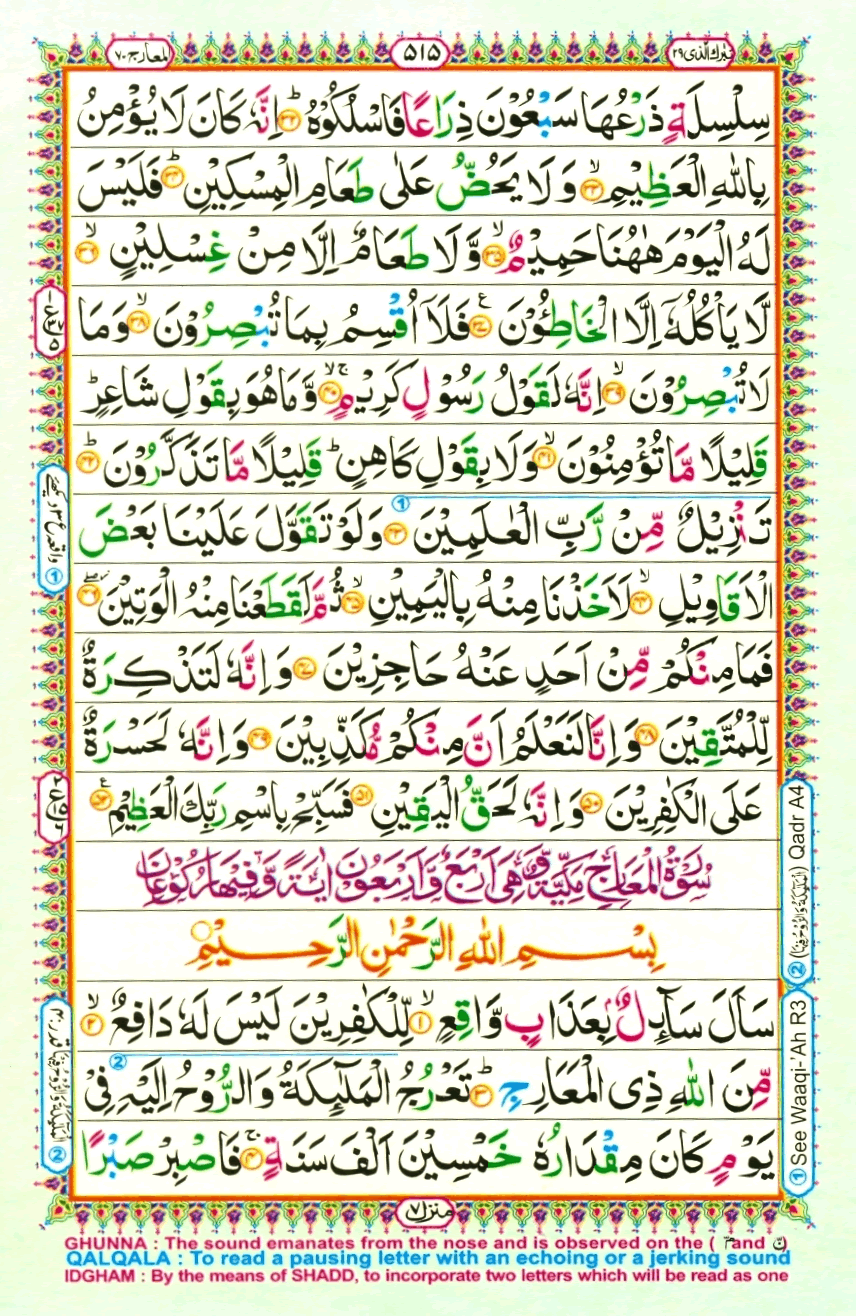 تبرك الذى ٢٩
٥١٥
المعارج ٧٠
سِلْسِلَةٍ ذَرْعُهَا سَبْعُوْنَ ذِرَاعًا فَاسْلُكُوْهُ ؕ ﴿۳۲﴾ اِنَّهٗ كَانَ لَا يُؤْمِنُ
بِاللّٰهِ الْعَظِيْمِ ۙ ﴿۳۳﴾ وَلَا يَحُضُّ عَلٰى طَعَامِ الْمِسْكِيْنِ ؕ ﴿۳۴﴾ فَلَيْسَ
لَهُ الْيَوْمَ هٰهُنَا حَمِيْمٌ ۙ ﴿۳۵﴾ وَّلَا طَعَامٌ اِلَّا مِنْ غِسْلِيْنٍ ۙ ﴿۳۶﴾
لَّا يَاْكُلُهٗٓ اِلَّا الْخَاطِئُوْنَ ع ﴿۳۷﴾ فَلَآ اُقْسِمُ بِمَا تُبْصِرُوْنَ ۙ ﴿۳۸﴾ وَمَا
لَا تُبْصِرُوْنَ ۙ ﴿۳۹﴾ اِنَّهٗ لَقَوْلُ رَسُوْلٍ كَرِيْمٍ ۚۙ ﴿۴۰﴾ وَّمَا هُوَ بِقَوْلِ شَاعِرٍ ؕ
قَلِيْلًا مَّا تُؤْمِنُوْنَ ۙ ﴿۴۱﴾ وَلَا بِقَوْلِ كَاهِنٍ ؕ قَلِيْلًا مَّا تَذَكَّرُوْنَ ؕ ﴿۴۲﴾
تَنْزِيْلٌ مِّنْ رَّبِّ الْعٰلَمِيْنَ ﴿۴۳﴾ وَلَوْ تَقَوَّلَ عَلَيْنَا بَعْضَ
الْاَقَاوِيْلِ ۙ ﴿۴۴﴾ لَاَخَذْنَا مِنْهُ بِالْيَمِيْنِ ۙ ﴿۴۵﴾ ثُمَّ لَقَطَعْنَا مِنْهُ الْوَتِيْنَ ﴿۴۶﴾
فَمَا مِنْكُمْ مِّنْ اَحَدٍ عَنْهُ حَاجِزِيْنَ ﴿۴۷﴾ وَاِنَّهٗ لَتَذْكِرَةٌ
لِّلْمُتَّقِيْنَ ﴿۴۸﴾ وَاِنَّا لَنَعْلَمُ اَنَّ مِنْكُمْ مُّكَذِّبِيْنَ ﴿۴۹﴾ وَاِنَّهٗ لَحَسْرَةٌ
عَلَى الْكٰفِرِيْنَ ﴿۵۰﴾ وَاِنَّهٗ لَحَقُّ الْيَقِيْنِ ﴿۵۱﴾ فَسَبِّحْ بِاسْمِ رَبِّكَ الْعَظِيْمِ ع ﴿۵۲﴾
سُوْرَةُ الْمَعَارِجِ مَكِّيَّةٌ وَّهِيَ اَرْبَعٌ وَّاَرْبَعُوْنَ اٰيَةً وَّفِيْهَا رُكُوْعَانِ
بِسْمِ اللّٰهِ الرَّحْمٰنِ الرَّحِيْمِ
سَاَلَ سَآئِلٌۢ بِعَذَابٍ وَّاقِعٍ ۙ ﴿۱﴾ لِّلْكٰفِرِيْنَ لَيْسَ لَهٗ دَافِعٌ ۙ ﴿۲﴾
مِّنَ اللّٰهِ ذِى الْمَعَارِجِ ؕ ﴿۳﴾ تَعْرُجُ الْمَلٰٓئِكَةُ وَالرُّوْحُ اِلَيْهِ فِىْ
يَوْمٍ كَانَ مِقْدَارُهٗ خَمْسِيْنَ اَلْفَ سَنَةٍ ۚ ﴿۴﴾ فَاصْبِرْ صَبْرًا
منزل ۷
① See Waaqi-'Ah R3
② Qadr A4
GHUNNA : The sound emanates from the nose and is observed on the ( مّ and نّ )
QALQALA : To read a pausing letter with an echoing or a jerking sound
IDGHAM : By the means of SHADD, to incorporate two letters which will be read as one